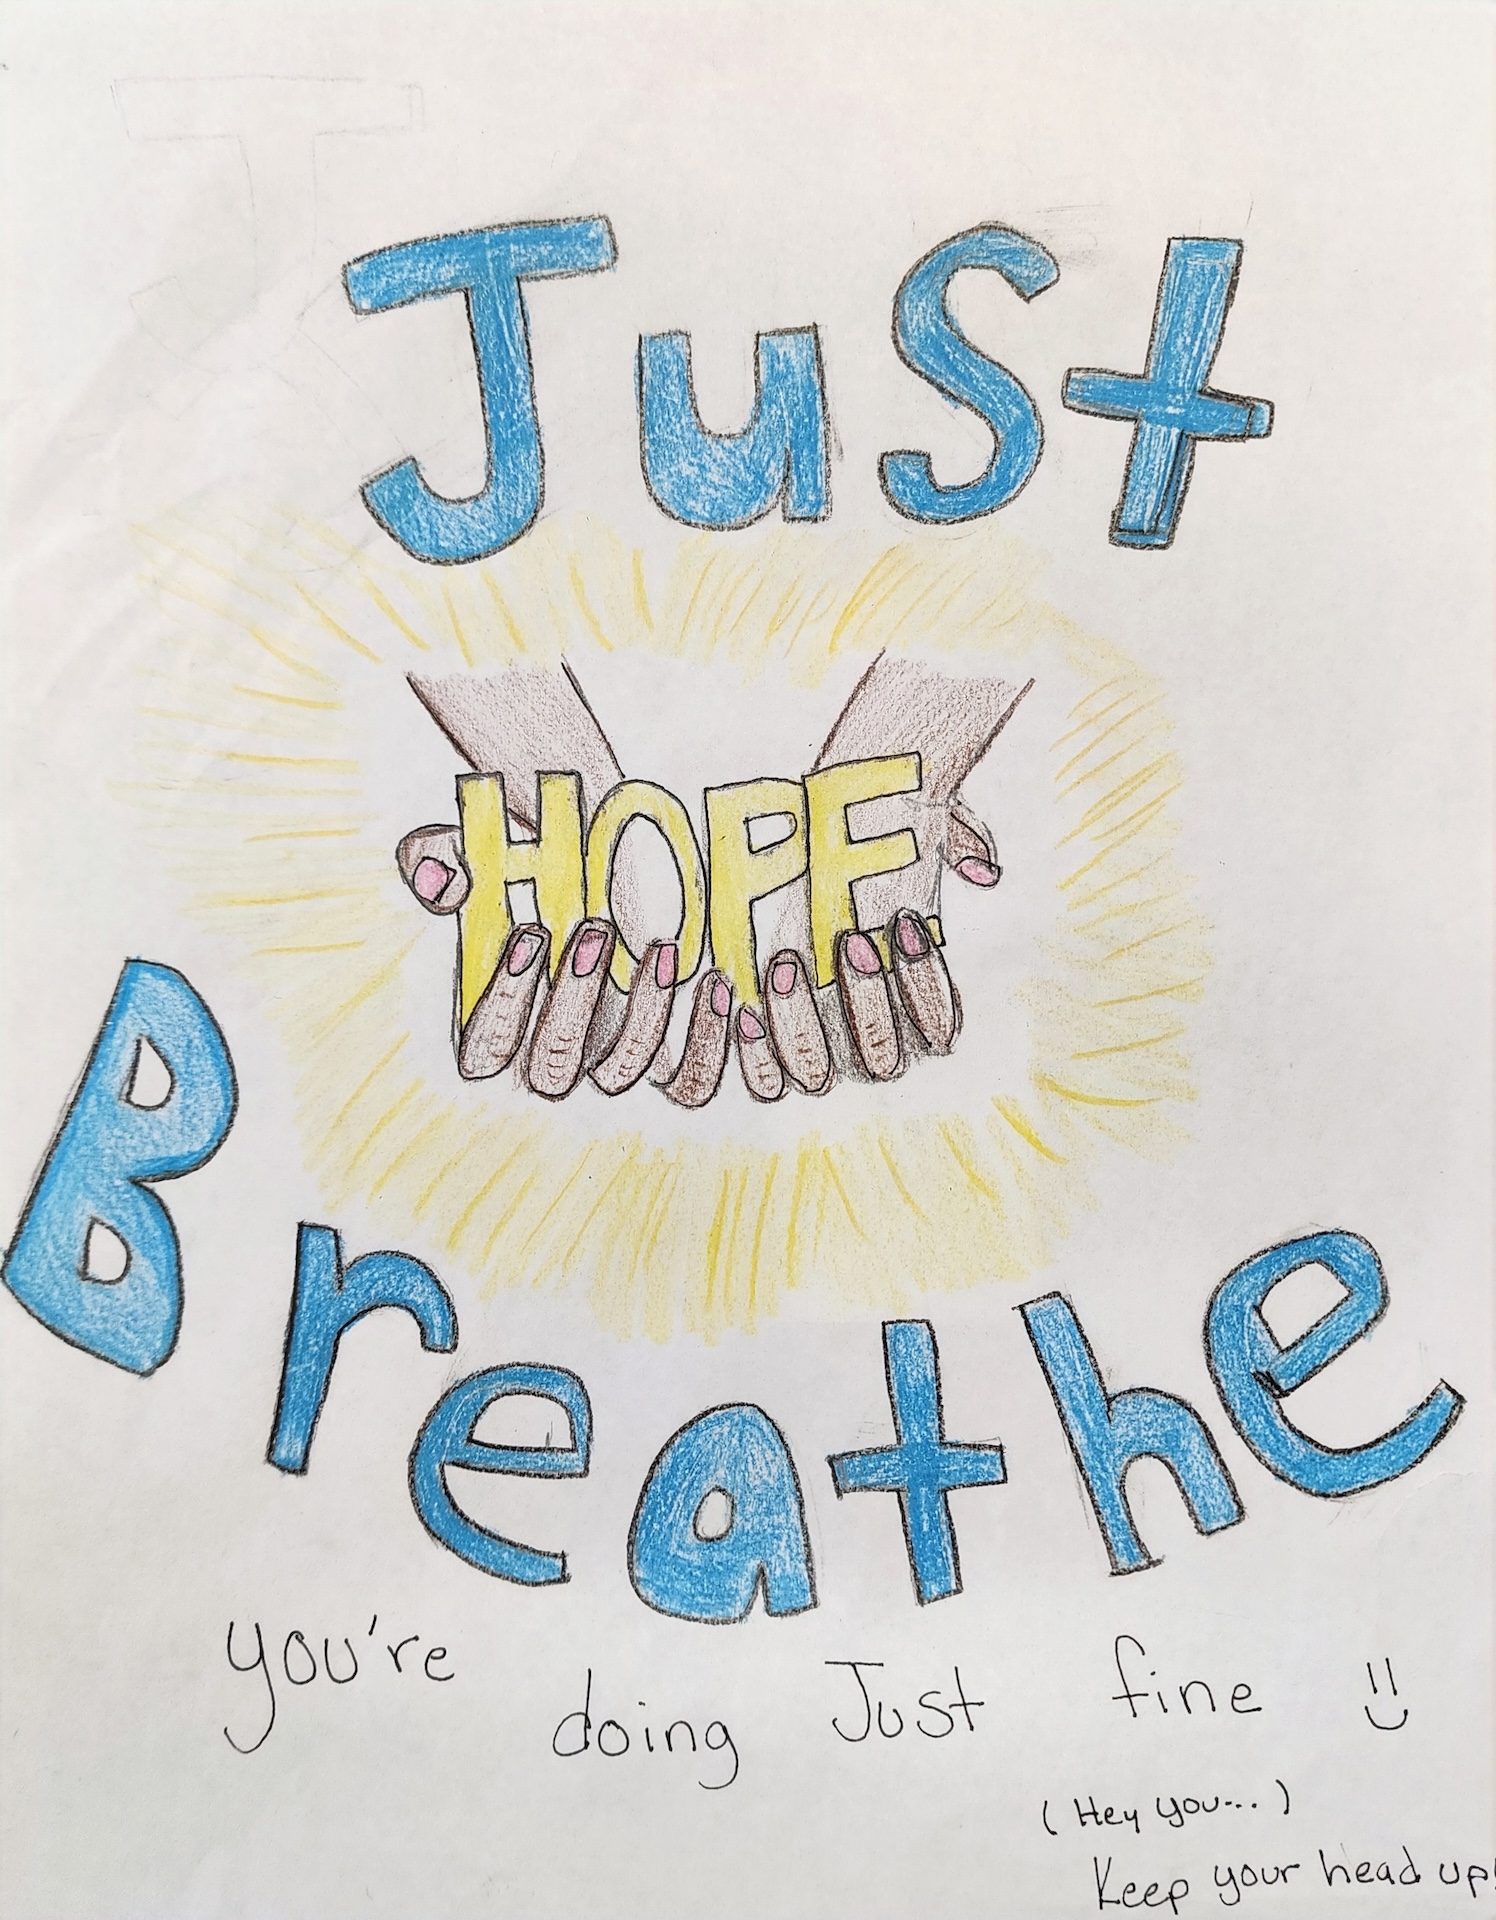 Just
HOPE
Breathe
you're doing Just fine
(Hey you...)
Keep your head up!